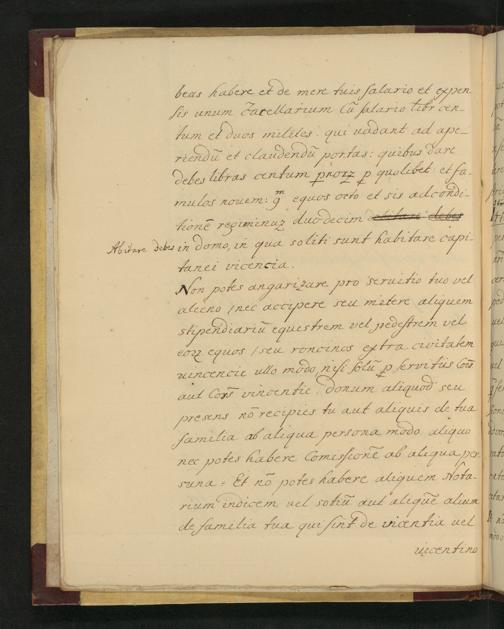 beas habere et de mere tuis salario et expen
sis unum Cacellarium Cũ salario libr cen
tum et duos milites: qui vadant ad ape-
riendũ et claudendũ portas: quibus dare
debes libras centum p quolibet: et fa-
mulos nouem: equos octo et sis ad condi-
tionẽ regiminuz duodecim habitare debes
Abitare debes in domo, in qua soliti sunt habitare capi-
tanei vicencia.
Non potes angarizare pro seruitio tuo vel
alieno / nec accipere seu mittere aliquem
stipendiariũ equestrem vel pedestrem vel
eorz equos / seu roncinos extra civitatem
vincencie ullo modo, nisi solũ p servitus
aut vincentie. Donum aliquod seu
presens nõ recipies tu aut aliquis de tua
familia ab aliqua persona modo aliquo
nec potes habere Comissionẽ ab aliqua per
suna = Et nõ potes habere aliquem Nota-
rium iudicem vel sotiũ aut aliquẽ alium
de familia tua qui sint de vicentia vel
vicentino